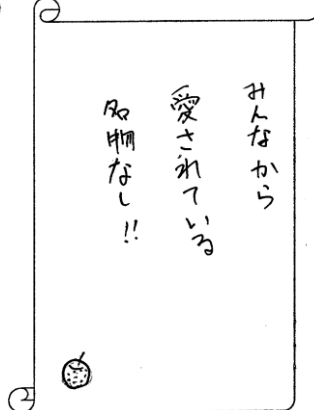 みんなから
愛されている
名物なし!!